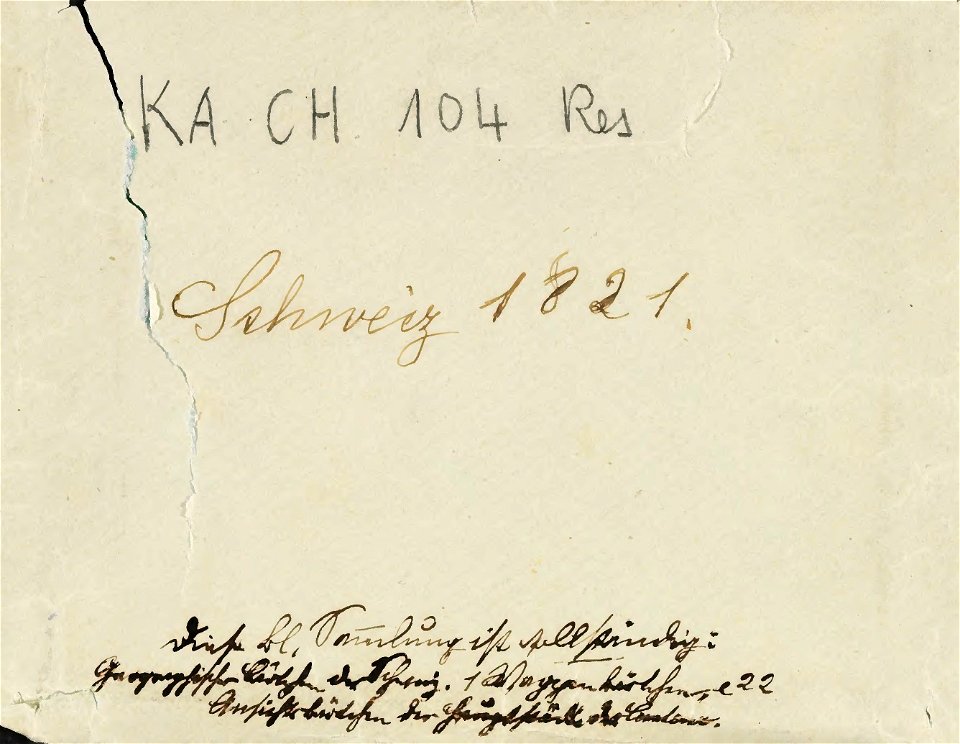 KA CH 104 Res
Schweiz 1821.
Diese kl. Sammlung ist vollständig:
Geographische Kärtchen der Schweiz. 1 Wappenkärtchen, 22
Ansichtskärtchen der Hauptstädte der Cantone.